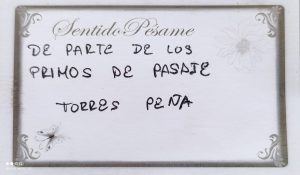 Sentido Pésame
DE PARTE DE LOS
PRIMOS DE PASAJE
TORRES PEÑA